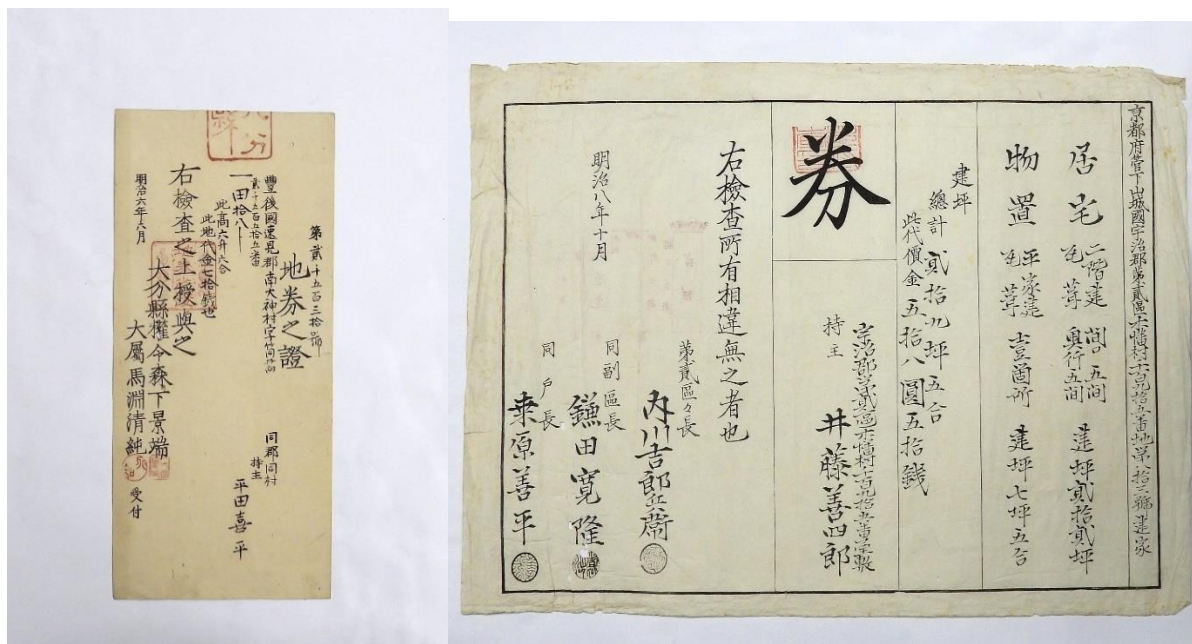 第貳千五百三拾號
地券之證
豐後國速見郡南大神村字
貳千五百五拾五番
一田拾八
此高六升六合
此地代金七拾錢也
同郡同村
持主
平田喜平
右檢查之上授與之
大分縣權令森下景端
大屬馬淵清純
明治六年六月
受付
京都府管下山城國宇治郡第貳區木幡村百九拾五番地第拾三號建家
居宅
二階建
瓦葺
間口五間
奥行五間
建坪貳拾貳坪
物置
平家建
瓦葺
壹箇所
建坪七坪五合
建坪
總計貳拾九坪五合
此代價金五拾八圓五拾錢
券
宗治郡第貳區木幡村百九拾五番
持主
井藤善四郎
右檢查所有相違無之者也
明治八年十月
第貳區々長
内川吉郎兵衞
同副區長
鎌田寛隆
同戸長
桒原善平